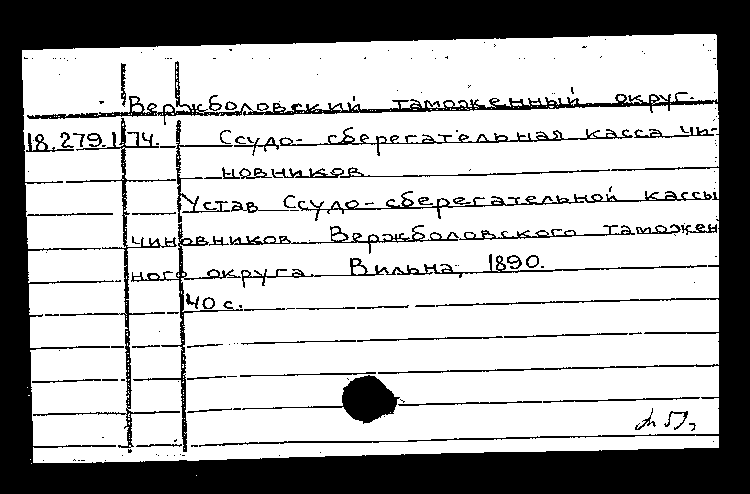 Вержболовский таможенный округ.
18.279.1.74. Ссудо-сберегательная касса чи-
новников
Устав Ссудо-сберегательной кассы
чиновников Вержболовского таможен
ного округа. Вильна, 1890.
40 с.